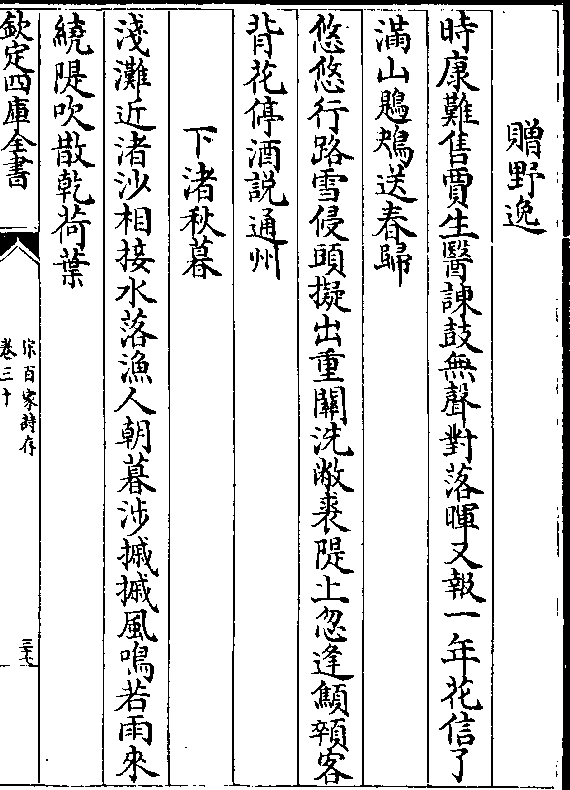 贈野逸
時康難售賈生醫諫鼓無聲對落暉又報一年花信了
滿山鶗鴂送春歸
悠悠行路雪侵頭擬出重關洗敝裘隄上忽逢顦顇客
背花停酒說通州
下渚秋暮
淺灘近渚沙相接水落漁人朝暮涉摵摵風鳴若雨來
繞隄吹散乾荷葉
欽定四庫全書
宋百家詩存
卷三十
三十七